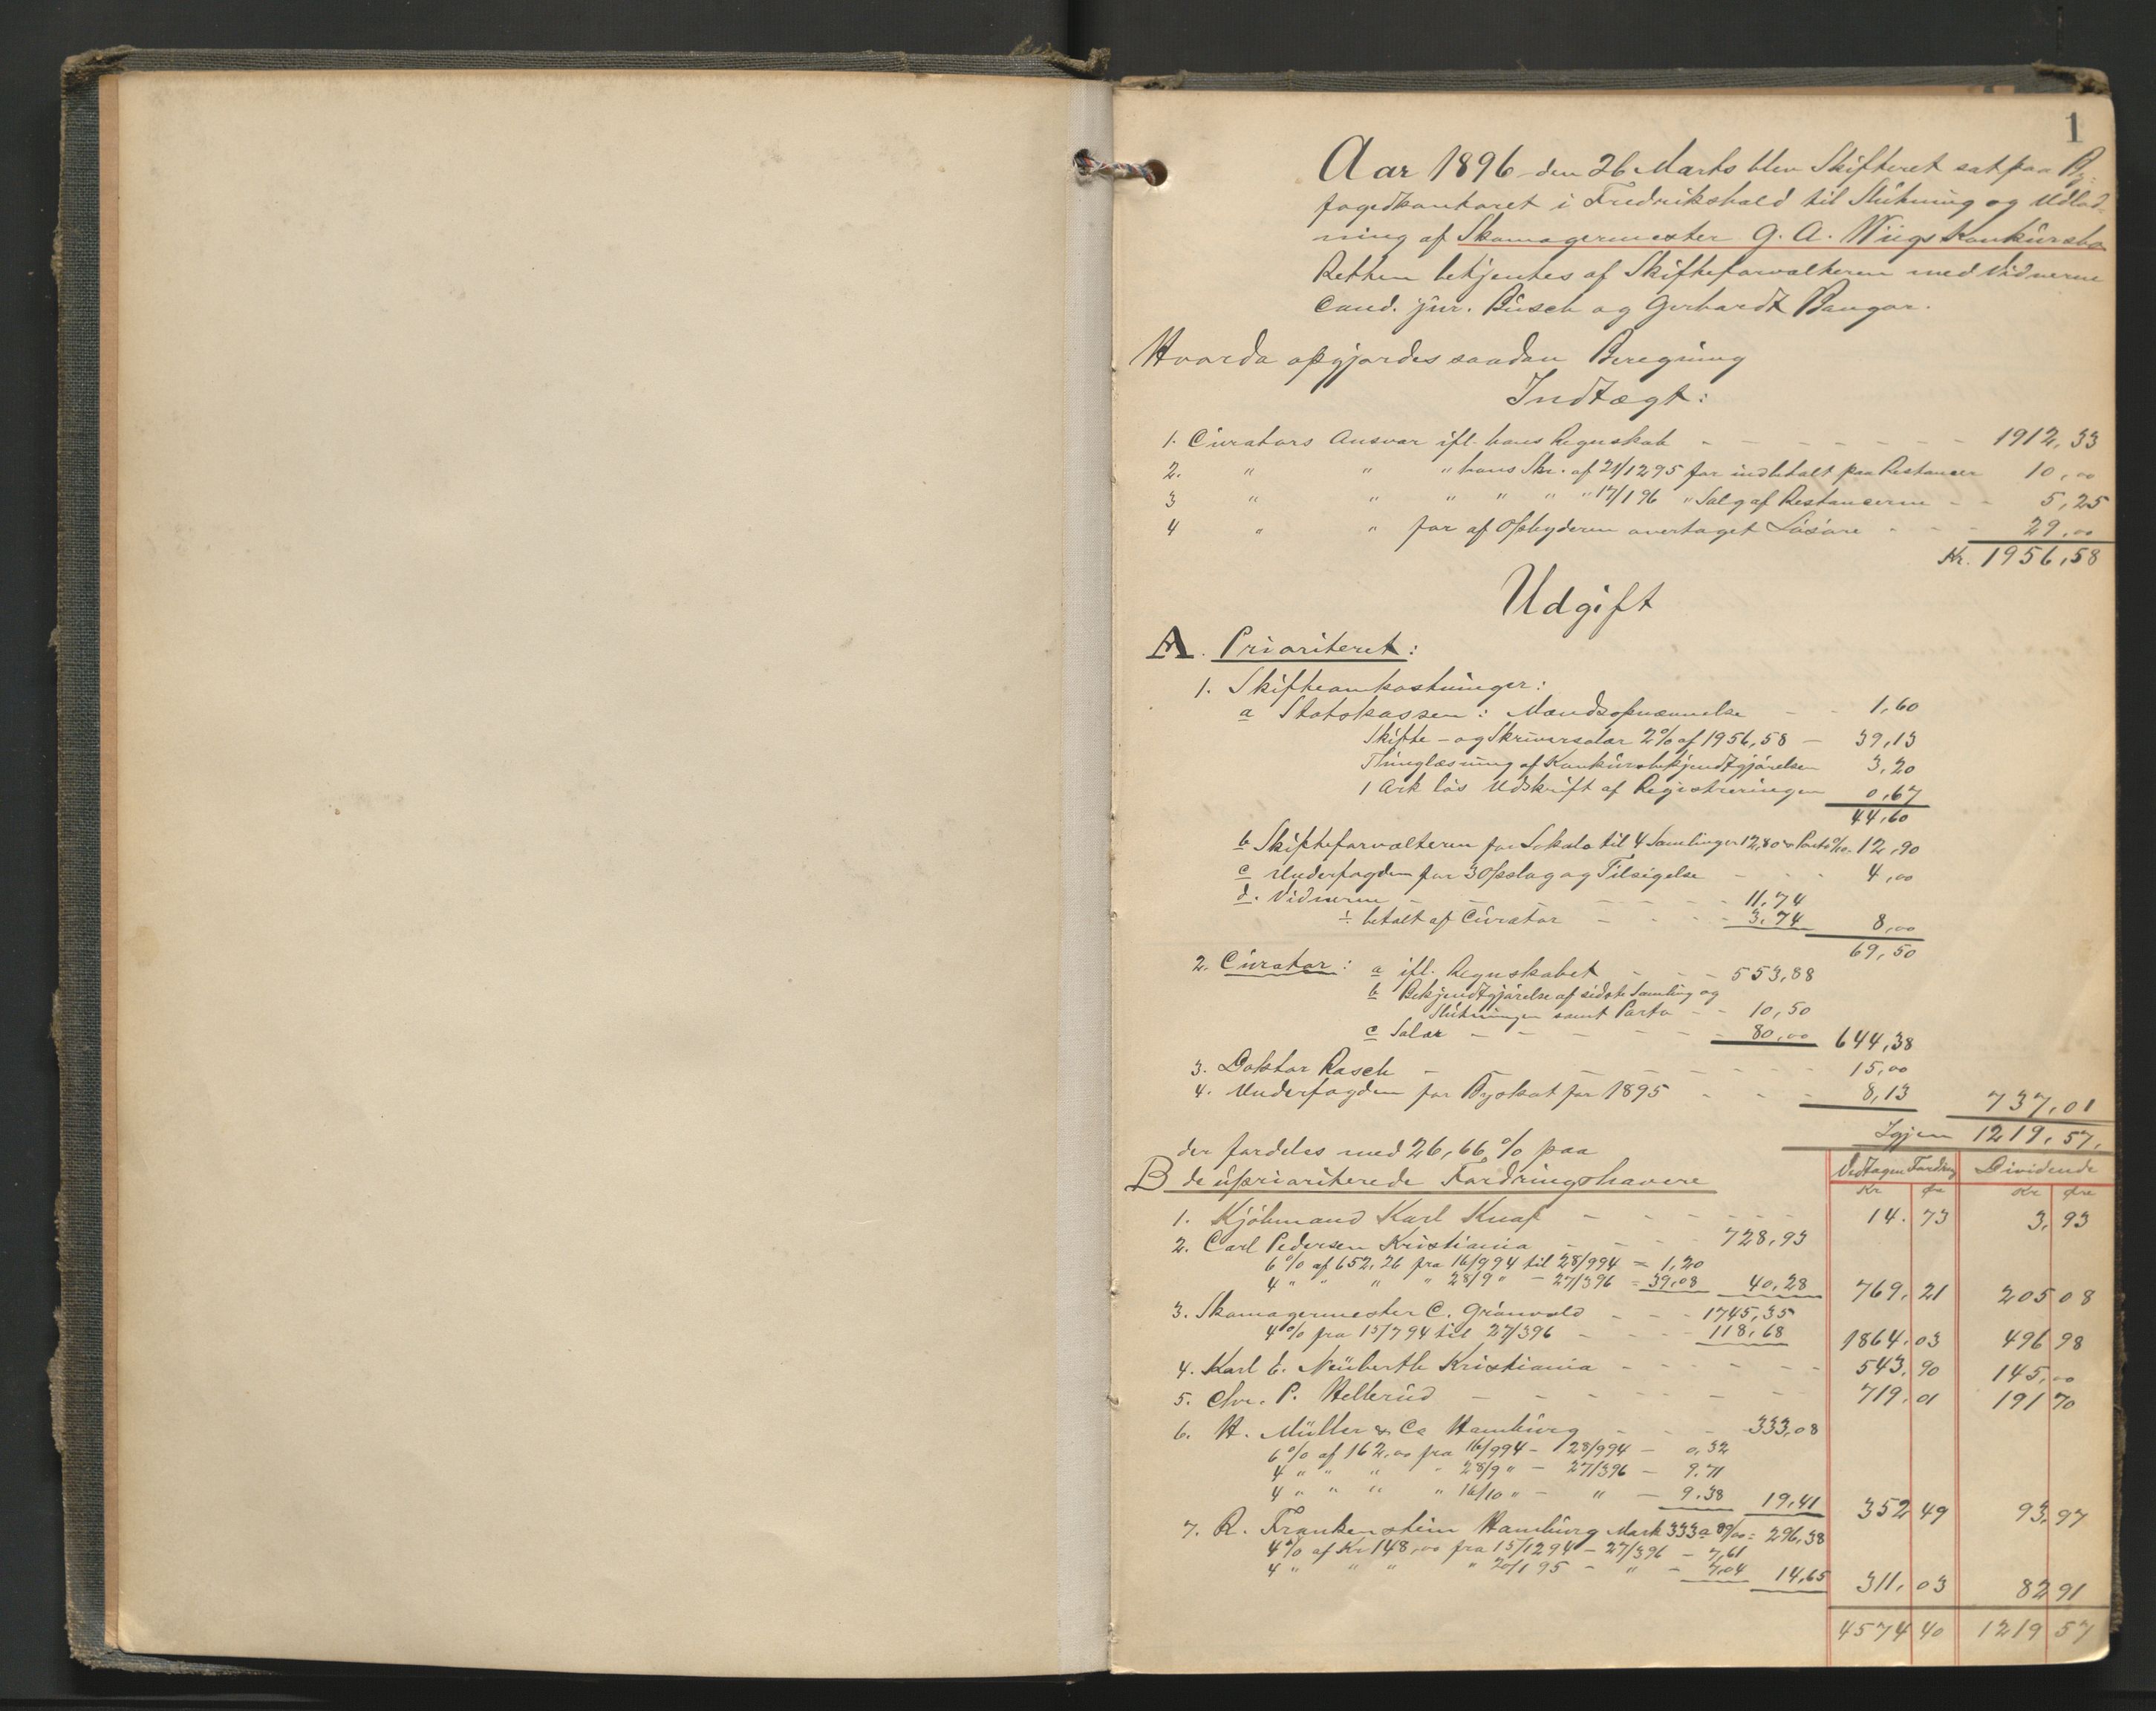 1
Aar 1896 den 26 Marts blev Skifteret sat paa By-
fogedkontoret i Fredrikshald til Slutning og Udlod-
ning af Skomagermester G. A. Wiigs Konkursbo
Retten betjentes af Skifteforvalteren med Vidnerne
Cand. jur. Busch og Gerhardt Bangor.
Hvorda opgjordes saadan Beregning
Indtægt:
1. Curators Ansvar ifl. hans Regnskab - - - - - - - 1912,33
2. " " " hans Skr. af 21/12 95 for indbetalt paa Restancer 10,00
3 " " " " " " 17/1 96 " Salg af Restancerne - - 5,25
4 " " for af Opbyderen overtaget Løsøre - - - 29,00
Kr. 1956,58
Udgift
A. Prioriteret:
1. Skifteomkostninger:
a Statskassen: Mændsopnævnelse - - 1,60
Skifte- og Skriversalær 2% af 1956,58 - 39,13
Thinglæsning af Konkursbekjendtgjørelsen 3,20
1 Ark løs Udskrift af Registreringen 0,67
44,60
b Skifteforvalteren for Lokale til 4 Samlinger 12,80 Porto 0/10 12,90
c Underfogden for 3 Opslag og Tilsigelse - - - 4,00
d. Vidnerne - - - - - - 11.74
÷ betalt af Curator - - - - 3.74 8,00
69,50
2. Curator: a ifl. Regnskabet - - - 553,88
b Bekjendtgjørelse af sidste Samling og
Slutningen samt Porto - - 10,50
c Salær - - - - - - 80,00 644,38
3. Doktor Rasch - - - - - - - 15,00
4. Underfogden for Byskat for 1895 - - - 8,13 737,01
Igjen 1219,57.
der fordeles med 26,66 % paa
B de uprioriterede Fordringshavere Vedtagen Fordring Dividende
Kr Øre Kr Øre
1. Kjøbmand Karl Knap - - - - - - 14.73 3,93
2. Carl Pedersen Kristiania - - - - 728,93
6% af 652,26 fra 16/9 94 til 28/9 94 = 1,20
4 " " " " 28/9 " - 27/3 96 = 39,08 40,28 769,21 205 08
3. Skomagermester C. Grönvold - - - 1745,35
4% fra 15/7 94 til 27/3 96 - - - - 118,68 1864,03 496 98
4. Karl E. Neuberth Kristiania - - - - - - 543,90 145,00
5. Chr. P. Hellerud - - - - - - - 719,01 191 70
6. H. Müller & Co Hamburg - - - 333,08
6% af 162,00 fra 16/9 94 - 28/9 94 - 0,32
4 " " " " 28/9 " - 27/3 96 - 9.71
4 " " " " 16/10 " - " - 9.38 19,41 352 49 93,97
7. R. Frankenstein Hamburg Mark 333 a 89/00 = 296,38
4% af Kr 148,00 fra 15/12 94 - 27/3 96 - 7,61
4 " " " " 20/1 95 - " - 7,04 14,65 311,03 82 91
4574 40 1219 57